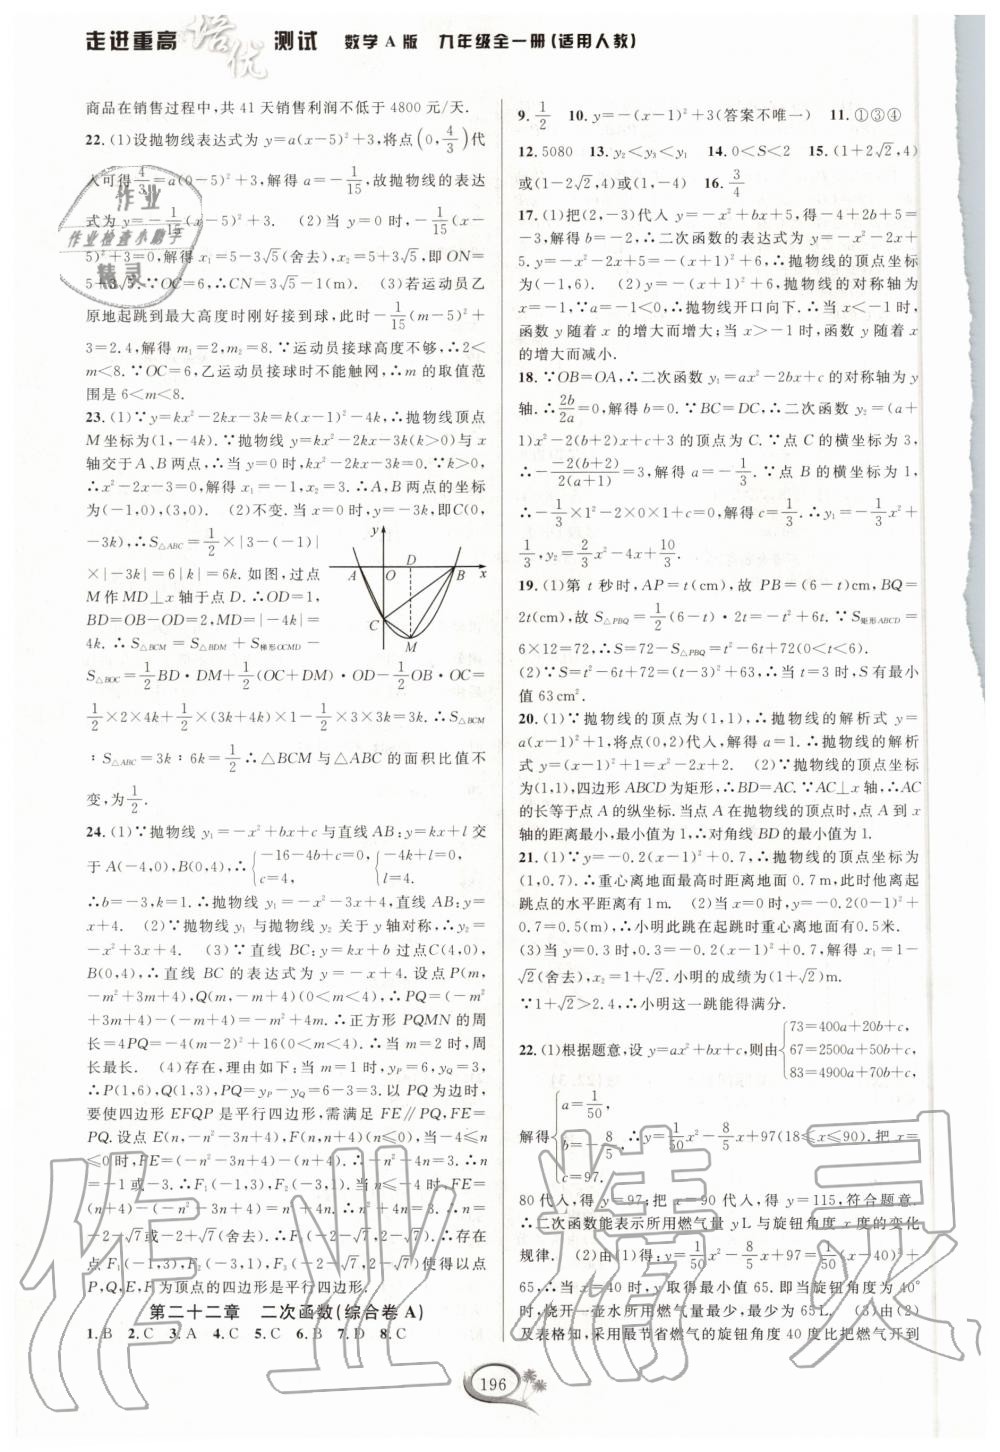 走进重高 培优 测试 数学 A 版 九年级全一册(适用人教)
商品在销售过程中,共 41 天销售利润不低于 4800 元/天.
22. (1)设抛物线表达式为 y=a(x-5)²+3,将点(0,4/3)代
入可得4/3=a(0-5)²+3,解得 a=-1/15,故抛物线的表达
式为 y=-1/15(x-5)²+3. (2)当 y=0 时,-1/15(x-
5)²+3=0,解得 x₁=5-3√5(舍去),x₂=5+3√5,即ON=
5+3√5.∵OC=6,∴CN=3√5-1(m). (3)若运动员乙
原地起跳到最大高度时刚好接到球,此时-1/15(m-5)²+
3=2.4,解得 m₁=2,m₂=8.∵运动员接球高度不够,∴2<
m<8.∵OC=6,乙运动员接球时不能触网,∴m 的取值范
围是 6<m<8.
23. (1)∵y=kx²-2kx-3k=k(x-1)²-4k,∴抛物线顶点
M 坐标为(1,-4k).∵抛物线 y=kx²-2kx-3k(k>0)与 x
轴交于 A、B 两点,∴当 y=0 时,kx²-2kx-3k=0.∵k>0,
∴x²-2x-3=0,解得 x₁=-1,x₂=3.∴A,B 两点的坐标
为(-1,0),(3,0). (2)不变.当 x=0 时,y=-3k,即C(0,
-3k),∴S△ABC=1/2×|3-(-1)|
×|-3k|=6|k|=6k. 如图,过点
M 作 MD⊥x 轴于点 D.∴OD=1,
BD=OB-OD=2,MD=|-4k|=
4k.∴S△BCM=S△BDM+S梯形OCMD-
y A O D B x C M
S△BOC=1/2BD·DM+1/2(OC+DM)·OD-1/2OB·OC=
1/2×2×4k+1/2(3k+4k)×1-1/2×3×3k=3k.∴S△BCM
:S△ABC=3k:6k=1/2∴△BCM与△ABC 的面积比值不
变,为1/2.
24. (1)∵抛物线 y₁=-x²+bx+c 与直线 AB:y=kx+l 交
于 A(-4,0),B(0,4),∴{-16-4b+c=0, c=4, {-4k+l=0, l=4.
∴b=-3,k=1.∴抛物线 y₁=-x²-3x+4,直线 AB:y=
x+4. (2)∵抛物线 y₁ 与抛物线 y₂ 关于 y 轴对称,∴y₂=
-x²+3x+4. (3)∵直线 BC:y=kx+b 过点C(4,0),
B(0,4),∴直线 BC 的表达式为 y=-x+4. 设点 P(m,
-m²+3m+4),Q(m,-m+4)(0<m<4).∴PQ=(-m²+
3m+4)-(-m+4)=-m²+4m.∴正方形 PQMN 的周
长=4PQ=-4(m-2)²+16(0<m<4).∴当 m=2 时,周
长最长. (4)存在,理由如下:当 m=1 时,yP=6,yQ=3,
∴P(1,6),Q(1,3),PQ=yP-yQ=6-3=3.以 PQ 为边时,
要使四边形 EFQP 是平行四边形,需满足 FE∥PQ,FE=
PQ.设点 E(n,-n²-3n+4),F(n,n+4)(n≤0),当-4≤n
≤0时,FE=(-n²-3n+4)-(n+4)=-n²-4n=3.∴n
=-1或-3.∴F₁(-1,3),F₂(-3,1).当 n≤-4 时,FE=(n
+4)-(-n²-3n+4)=n²+4n=3.∴n=
-2-√7或-2+√7(舍去).∴F₃(-2-√7,2-√7).∴存在
点 F₁(-1,3),F₂(-3,1),F₃(-2-√7,2-√7)使得以点
P,Q,E,F 为顶点的四边形是平行四边形.
第二十二章 二次函数(综合卷 A)
1. B 2. C 3. A 4. C 5. C 6. B 7. D 8. C
9. 1/2 10. y=-(x-1)²+3(答案不唯一) 11. ①③④
12. 5080 13. y₂<y₃<y₁ 14. 0<S<2 15. (1+2√2,4)
或(1-2√2,4)或(1,-4) 16. 3/4
17. (1)把(2,-3)代入 y=-x²+bx+5,得-4+2b+5=
-3,解得 b=-2,∴二次函数的表达式为 y=-x²-2x+
5.∵y=-x²-2x+5=-(x+1)²+6,∴抛物线的顶点坐标
为(-1,6). (2)∵y=-(x+1)²+6,∴抛物线的对称轴为
x=-1.∵a=-1<0,∴抛物线开口向下.∴当 x<-1 时,
函数 y 随着 x 的增大而增大;当 x>-1 时,函数 y 随着 x
的增大而减小.
18. ∵OB=OA,∴二次函数 y₁=ax²-2bx+c 的对称轴为 y
轴.∴2b/2a=0,解得 b=0.∵BC=DC,∴二次函数 y₂=(a+
1)x²-2(b+2)x+c+3 的顶点为 C.∵点 C 的横坐标为 3,
∴- -2(b+2)/2(a+1)=3,解得 a=-1/3.∵点 B 的横坐标为 1,
∴-1/3×1²-2×0×1+c=0,解得 c=1/3.∴y₁=-1/3x²+
1/3,y₂=2/3x²-4x+10/3.
19. (1)第 t 秒时,AP=t(cm),故 PB=(6-t)cm,BQ=
2t(cm),故 S△PBQ=1/2(6-t)·2t=-t²+6t.∵S矩形ABCD=
6×12=72,∴S=72-S△PBQ=t²-6t+72(0<t<6).
(2)∵S=t²-6t+72=(t-3)²+63,∴当 t=3 时,S 有最小
值 63 cm².
20. (1)∵抛物线的顶点为(1,1),∴抛物线的解析式 y=
a(x-1)²+1,将点(0,2)代入,解得 a=1.∴抛物线的解析
式 y=(x-1)²+1=x²-2x+2. (2)∵抛物线的顶点坐标
为(1,1),四边形 ABCD 为矩形,∴BD=AC.∵AC⊥x 轴,∴AC
的长等于点 A 的纵坐标.当点 A 在抛物线的顶点时,点 A 到 x
轴的距离最小,最小值为 1,∴对角线 BD 的最小值为 1.
21. (1)∵y=-0.2(x-1)²+0.7,∴抛物线的顶点坐标为
(1,0.7).∴重心离地面最高时距离地面 0.7m,此时他离起
跳点的水平距离有 1m. (2)当 x=0 时,y=-0.2(0-1)²+
0.7=0.5(m),∴小明此跳在起跳时重心离地面有0.5米.
(3)当 y=0.3 时,0.3=-0.2(x-1)²+0.7,解得 x₁=1-
√2(舍去),x₂=1+√2.小明的成绩为(1+√2)m.
∵1+√2>2.4,∴小明这一跳能得满分.
22. (1)根据题意,设 y=ax²+bx+c,则由{73=400a+20b+c, 67=2500a+50b+c, 83=4900a+70b+c,
解得{a=1/50, b=-8/5, c=97. ∴y=1/50x²-8/5x+97(18≤x≤90).把 x=
80 代入,得 y=97;把 x=90 代入,得 y=115,符合题意.
∴二次函数能表示所用燃气量 y L 与旋钮角度 x 度的变化
规律. (2)由(1)得:y=1/50x²-8/5x+97=1/50(x-40)²+
65,∴当 x=40 时,y 取得最小值 65.即当旋钮角度为 40°
时,烧开一壶水所用燃气量最少,最少为 65L. (3)由(2)
及表格知,采用最节省燃气的旋钮角度 40 度比把燃气开到
196
作业
作业检查小助手
精灵
作业精灵